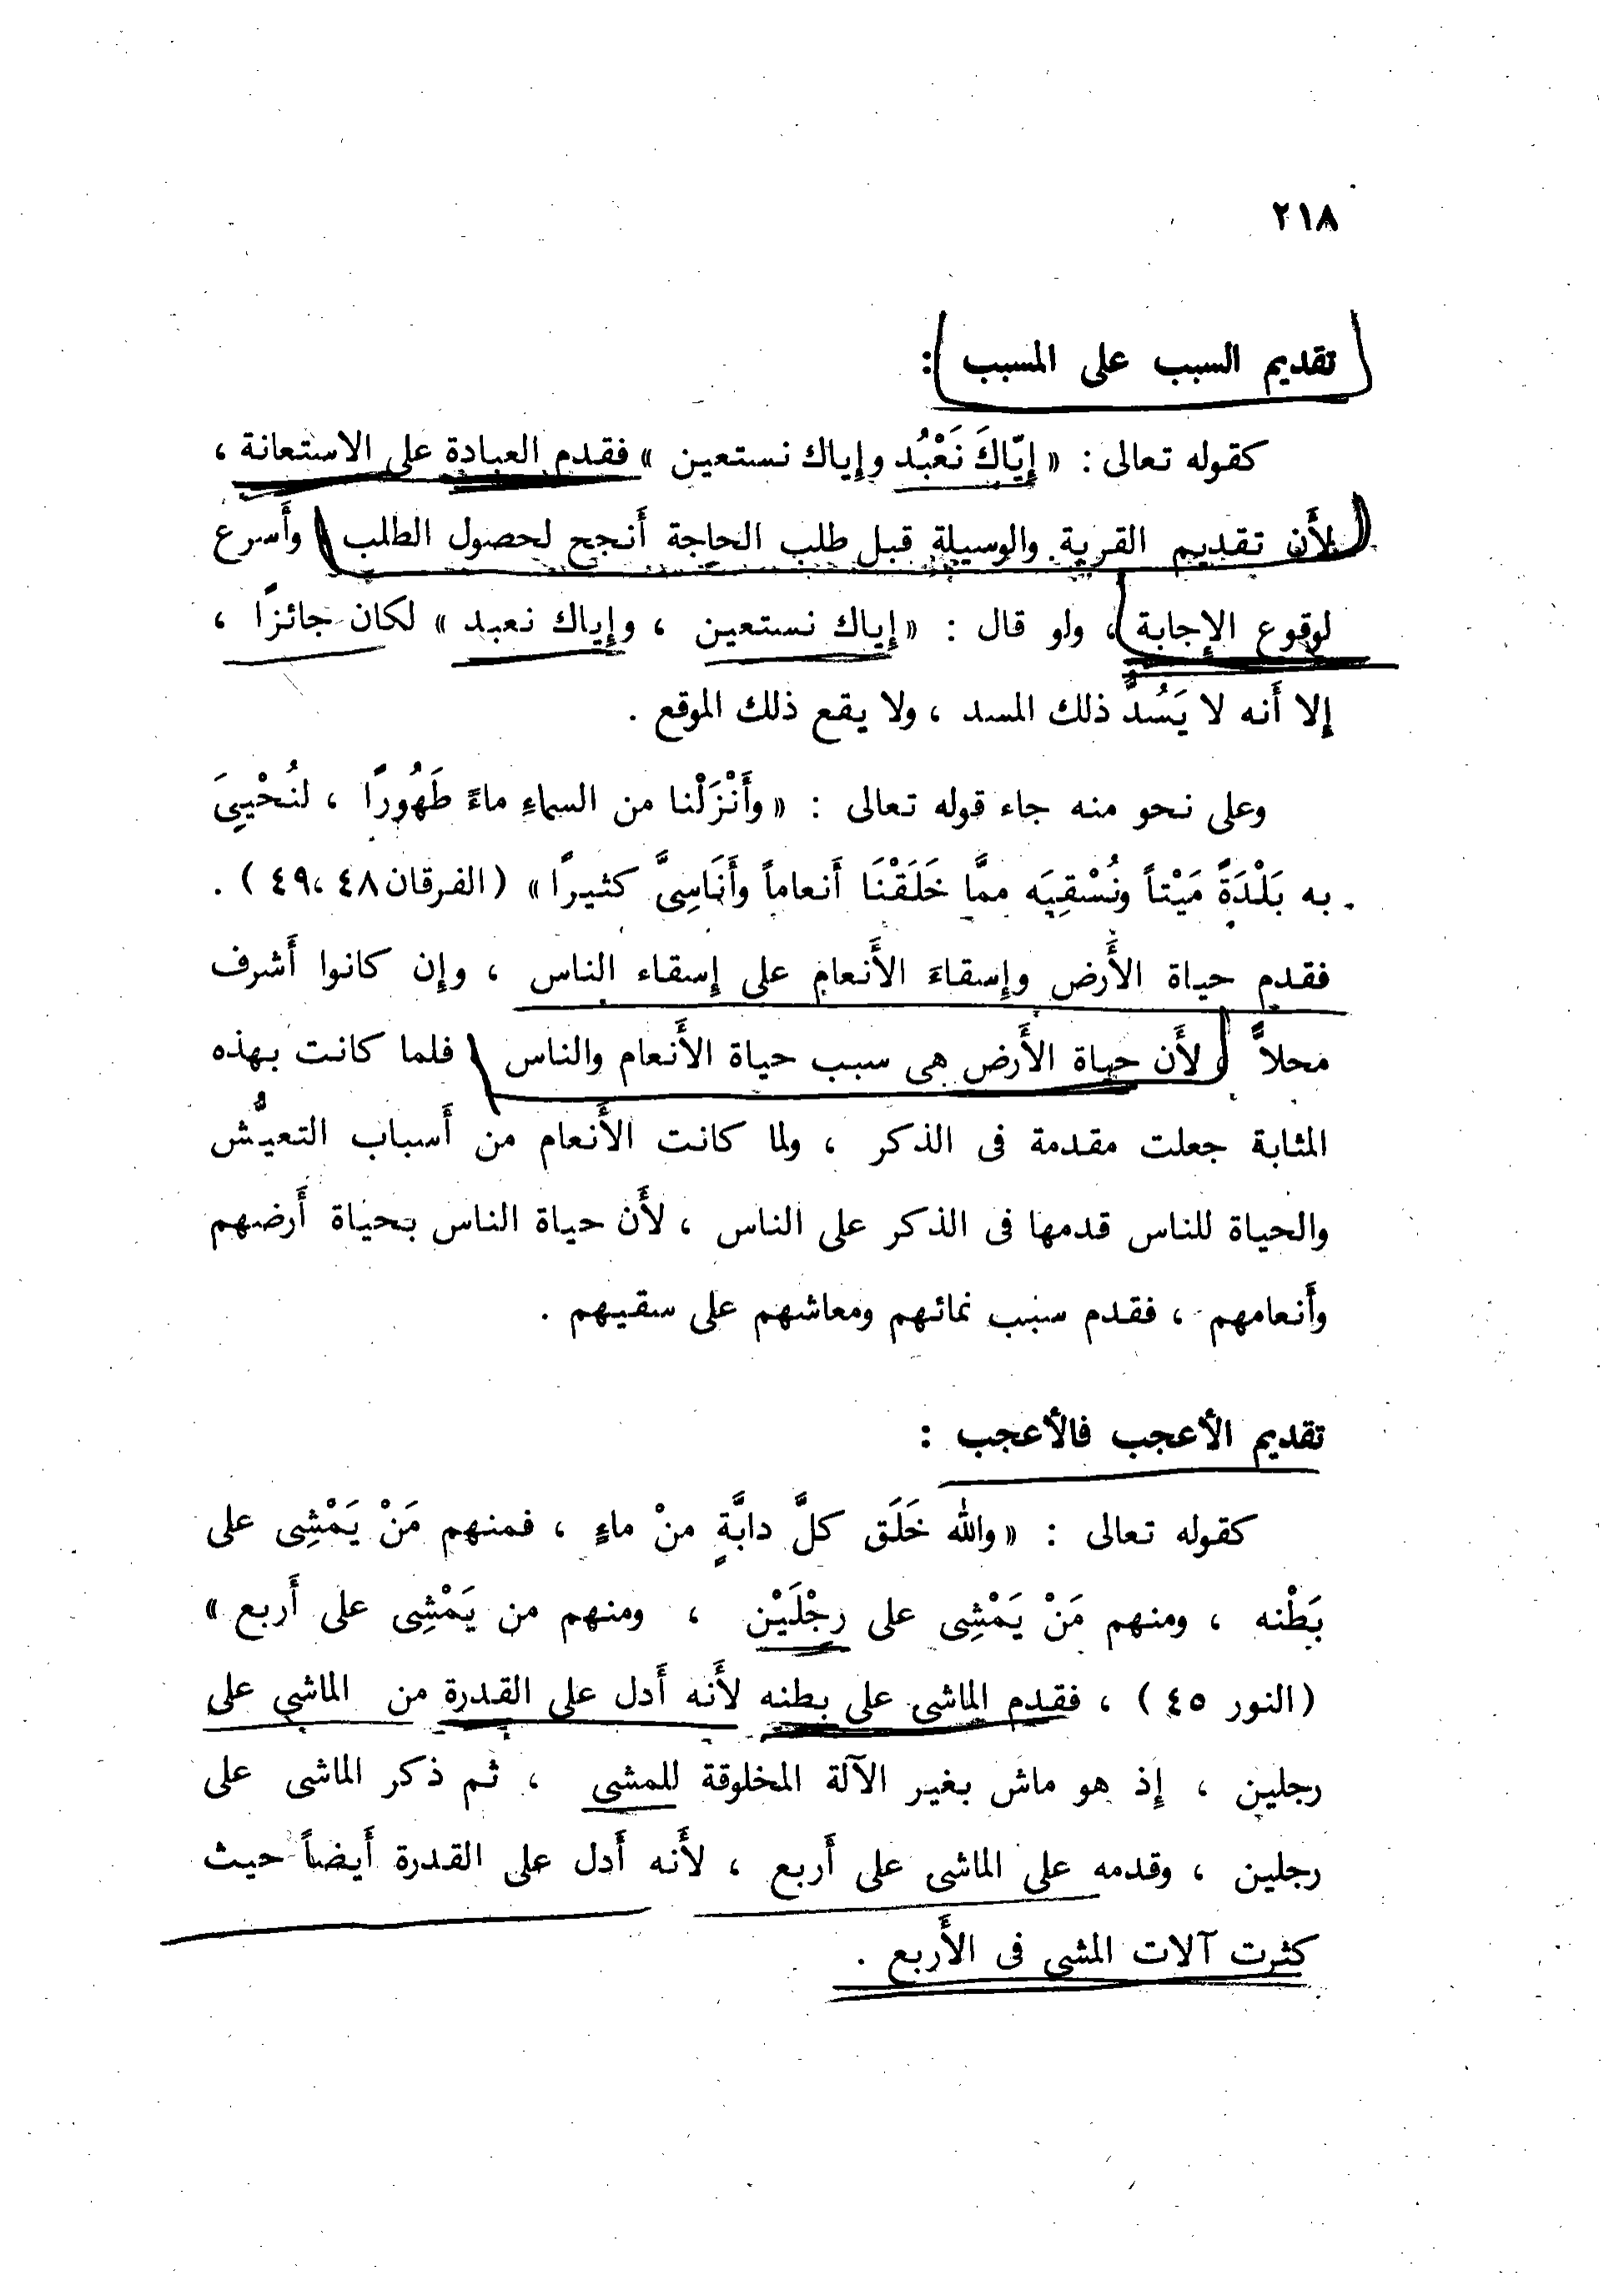 ٢١٨
تقديم السبب على المسبب :
كقوله تعالى : « إِيّاكَ نَعْبُد وإياك نستعين » فقدم العبادة على الاستعانة ،
لأَن تقديم القربة والوسيلة قبل طلب الحاجة أَنجح لحصول الطلب وأَسرع
لوقوع الإجابة ، ولو قال : « إياك نستعين ، وإياك نعبد » لكان جائزًا ،
إلا أَنه لا يَسُدُّ ذلك المسد ، ولا يقع ذلك الموقع .
وعلى نحو منه جاء قوله تعالى : « وأَنْزَلْنا من السماءِ ماءً طَهُورًا ، لنُحْيِىَ
به بَلْدَةً مَيْتاً ونُسْقِيَه ممَّا خَلَقْنَا أَنعاماً وأَنَاسِىَّ كثيرًا » (الفرقان ٤٨ ،٤٩ ) .
فقدم حياة الأَرض وإسقاءَ الأَنعام على إسقاء الناس ، وإن كانوا أَشرف
محلاًّ لأَن حياة الأَرض هى سبب حياة الأَنعام والناس فلما كانت بهذه
المثابة جعلت مقدمة فى الذكر ، ولما كانت الأَنعام من أَسباب التعيُّش
والحياة للناس قدمها فى الذكر على الناس ، لأَن حياة الناس بحياة أَرضهم
وأَنعامهم ، فقدم سبب نمائهم ومعاشهم على سقيهم .
تقديم الأعجب فالأعجب :
كقوله تعالى : « والله خَلَق كلَّ دابَّةٍ منْ ماءٍ ، فمنهم مَنْ يَمْشِى على
بَطْنه ، ومنهم مَنْ يَمْشِى على رِجْلَيْن ، ومنهم من يَمْشِى على أَربع »
(النور ٤٥ ) ، فقدم الماشى على بطنه لأَنه أَدل على القدرة من الماشى على
رجلين ، إذ هو ماش بغير الآلة المخلوقة للمشى ، ثم ذكر الماشى على
رجلين ، وقدمه على الماشى على أَربع ، لأَنه أَدل على القدرة أَيضاً حيث
كثرت آلات المشى فى الأَربع .